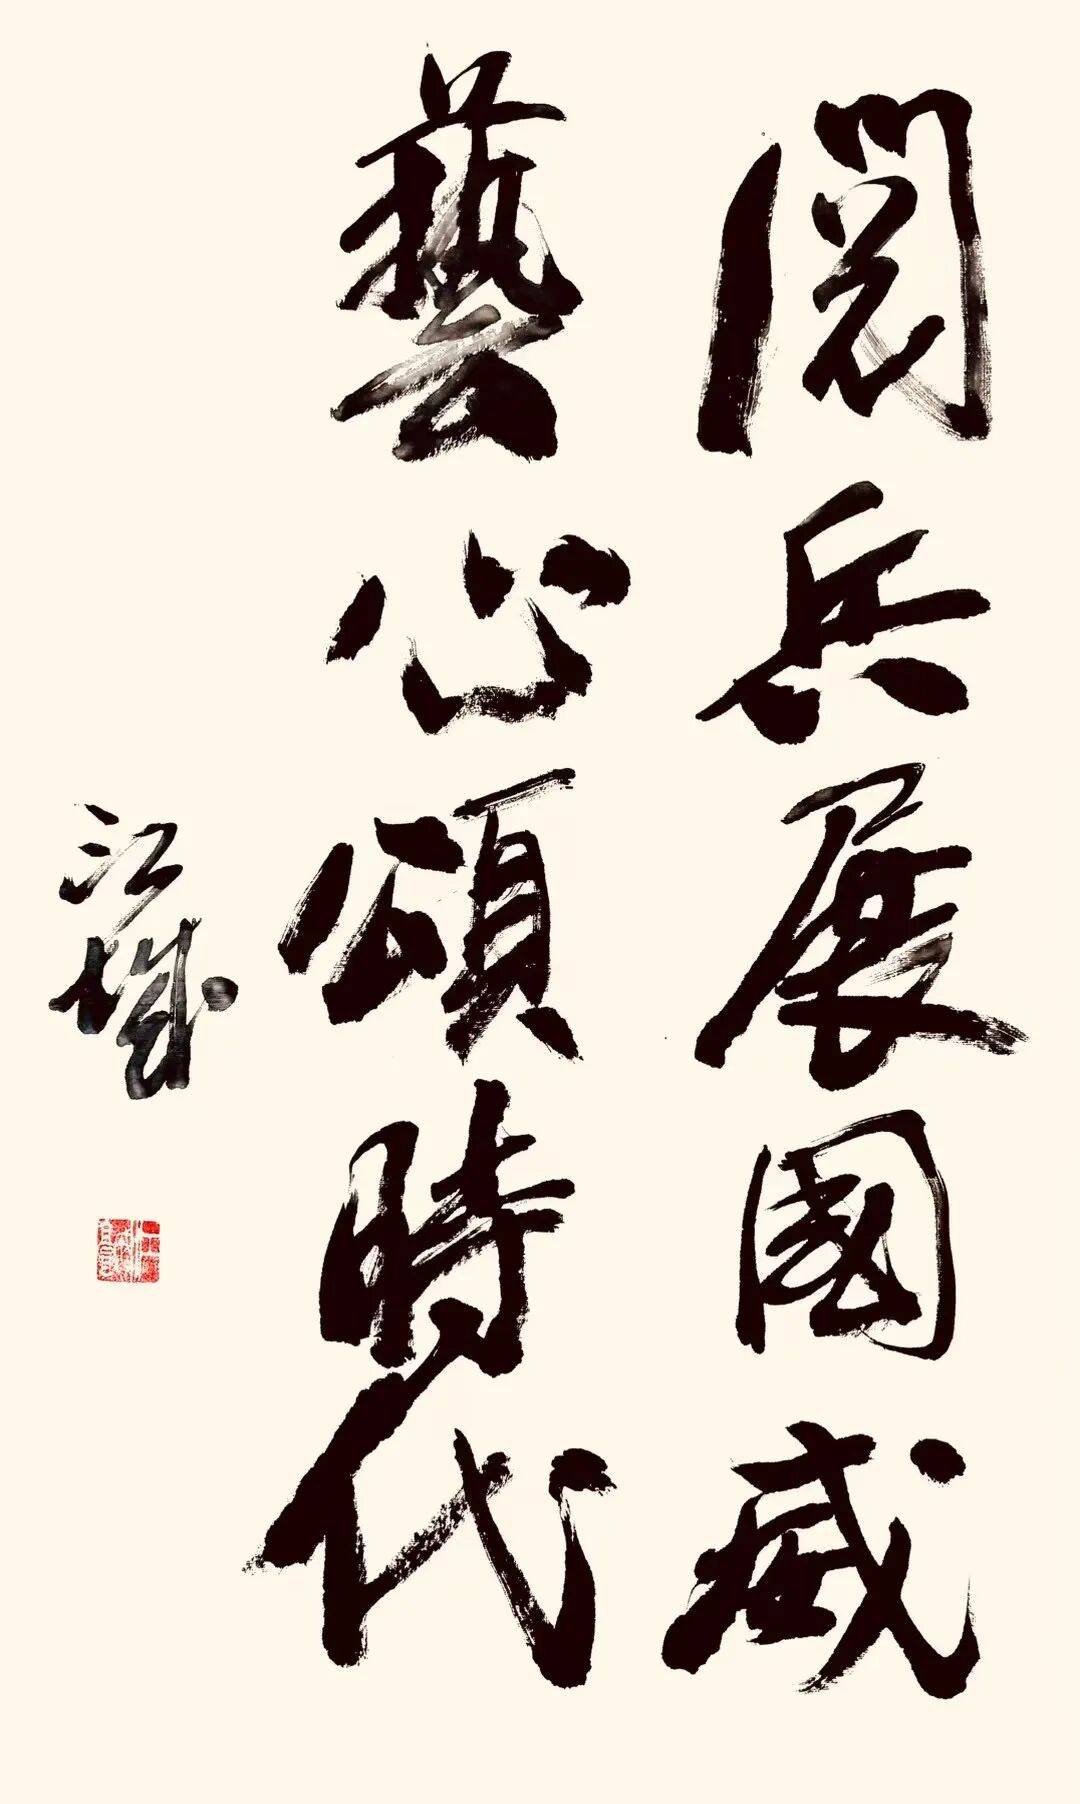 閱兵展國威
藝心頌時代
江城